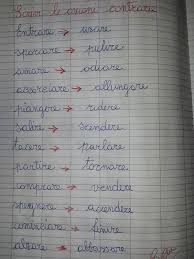 Scrivi le azioni contrarie
Entrare → uscire
sporcare → pulire
amare → odiare
accorciare → allungare
piangere → ridere
salire → scendere
tacere → parlare
partire → tornare
comprare → vendere
spegnere → accendere
cominciare → finire
alzare → abbassare